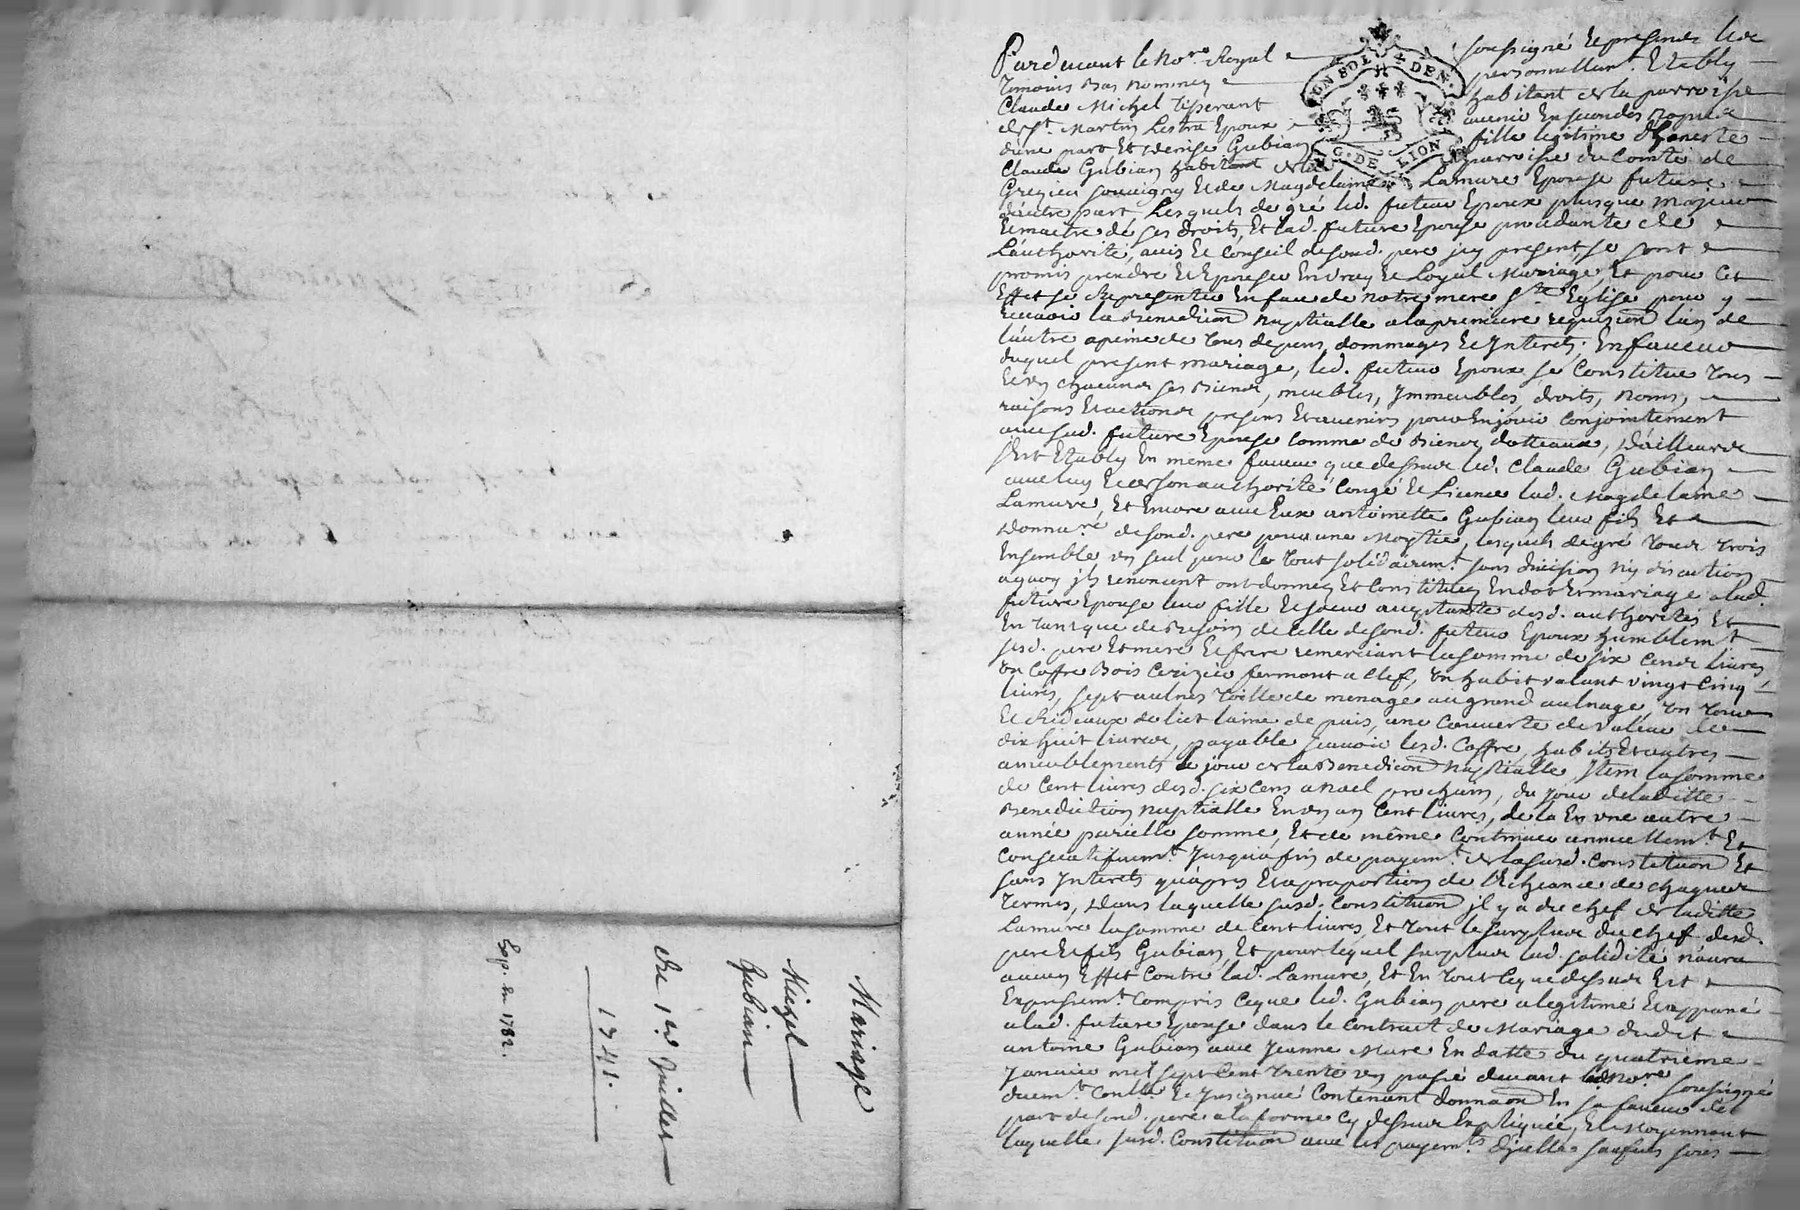 Mariage
Michel
Gubian
Du 1er Juillet
1741.
Exp. en 1782.
UN SOL 4 DEN.
G. DE LION
Pardevant le No.re Royal soussigné et presents les
Temoins Bas nommez personnellemt. Etably
Claude Michel Tisserant habitant de la parroisse
de St. Martin Lestra Epoux avenir En secondes nopces
dune part Et Denise Gubian fille legitime d'honeste
Claude Gubian habitant de la parroisse du Comté de
Grezieu Souvigny Et de Magdelaine Lamure Epouse future
d'autre part Lesquels de gré led. futur Epoux plusque majeur
Et maitre de ses droits, Et lad. future Epouse procedante de
L'authorité, avis Et Conseil de sond. pere icy present, se sont
promis prendre Et Epouser En vray Et Loyal Mariage, Et pour cet
Effet se Representer En face de notre mere Ste. Eglise pour y
recevoir la Benediction Nuptialle a la premiere requizion lun de
l'autre apeine de tous depens, dommages Et Interets; En faveur
duquel present mariage, led. futur Epoux se Constitue tous
Et un chacuns ses Biens, meubles, Immeubles, droits, noms,
raisons Et actions presens Et avenirs pour En jouir conjointement
avec sad. future Epouse comme de Biens dotteaux, d'ailleurs
s'est Etably En meme faveur que dessus led. Claude Gubian
avec luy Et de son authorité Congé Et Licence lad. Magdelaine
Lamure, Et Encore avec Eux antoinette Gubian leur fils Et
donna.re de sond. pere pour une Moytié, lesquels de gré tous trois
Ensemble, un seul pour le tout solidairemt. sans division ny discution
aquoy ils renoncent ont donnez Et Constituez En dot Et mariage a lad.
future Epouse leur fille Et soeur acceptante desd. authorités Et
En tant que de Besoin de Celle de sond. futur Epoux humblemt.
sesd. pere Et mere Et frere remerciant la somme de six Cens livres,
un Coffre Bois Cerizier fermant a Clef, un habit valant vingt Cinq
livres, sept aulnes Toille de menage au grand aulnage, un tour
Et Rideaux de lict laine de pais, une Couverte de valeur de
dix huit livres, payable sçavoir lesd. Coffre, habits Et autres
ameublements le jour de la Benedicon Nuptialle, Item la somme
de Cent livres desd. six Cens a noel prochain, du jour de laditte
Benediction Nuptialle En un an Cent livres, de la En une autre
année pareille somme, Et de même Continuer annuellemt. Et
Consecutifvemt. Jusqu'a fin de payemt. de la susd. Constitution Et
sans Interets qu'apres Et a proportion de l'Echeance de chaques
Termes, dans laquelle susd. Constitution il y a du chef de laditte
Lamure la somme de Cent livres Et tout le surplus du chef desd.
pere Et fils Gubian, Et pour lequel surplus lad. solidité n'aura
aucun Effet Contre lad. Lamure, Et En tout ce que dessus Est
Expressemt. compris ce que led. Gubian pere a legitimé Et appané
a lad. future Epouse dans le Contract de Mariage dudit
antoine Gubian avec Jeanne Mure En datte du quatrieme
Janvier mil sept Cent trente un passé devant led. No.re soussigné
duemt. Conllé Et Insignué Contenant donnaon En sa faveur de
part de sond. pere a la forme Cy dessus Expliquée, Et Moyennant
laquelle susd. Constitution avec les payemts. d'Icelle saufves sous